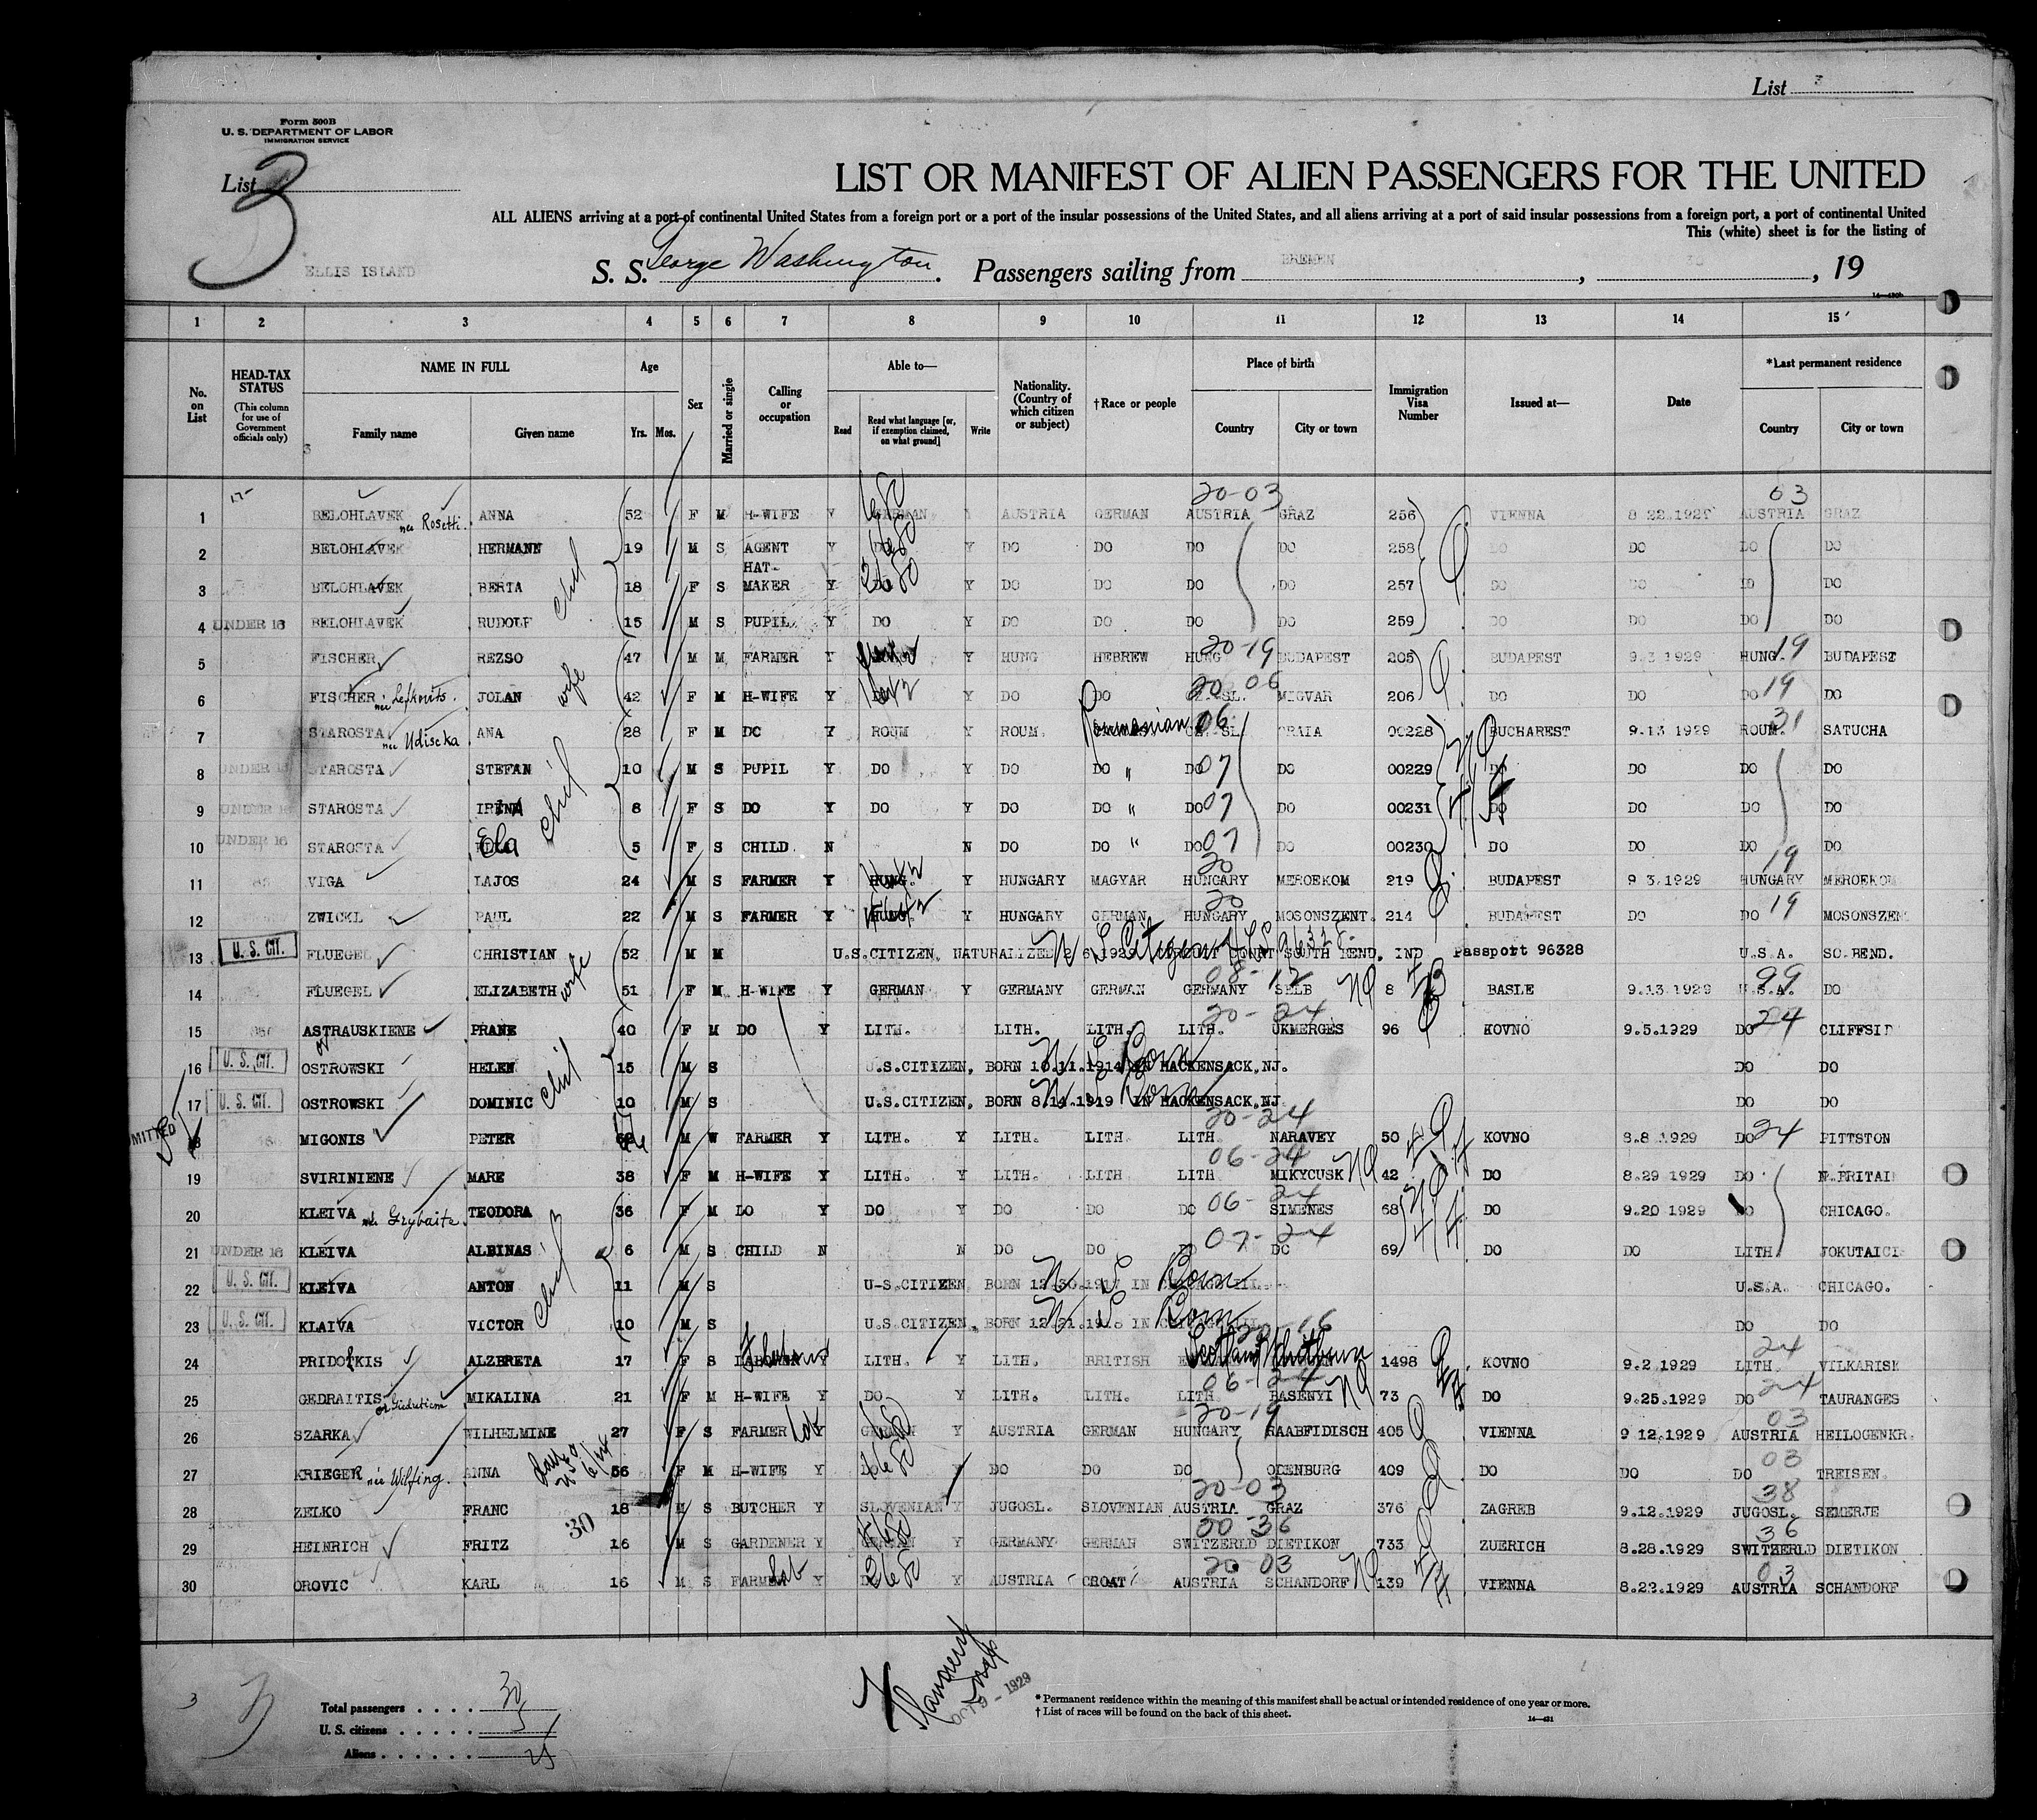 List 3
Form 500B
U. S. DEPARTMENT OF LABOR
IMMIGRATION SERVICE
List 3
LIST OR MANIFEST OF ALIEN PASSENGERS FOR THE UNITED
ALL ALIENS arriving at a port of continental United States from a foreign port or a port of the insular possessions of the United States, and all aliens arriving at a port of said insular possessions from a foreign port, a port of continental United
This (white) sheet is for the listing of
ELLIS ISLAND
S. S. George Washington. Passengers sailing from BREMEN, , 19
1 2 3 4 5 6 7 8 9 10 11 12 13 14 15
No. on List
HEAD-TAX STATUS (This column for use of Government officials only)
NAME IN FULL Family name Given name
Age Yrs. Mos.
Sex
Married or single
Calling or occupation
Able to— Read Read what language [or, if exemption claimed, on what ground] Write
Nationality. (Country of which citizen or subject)
†Race or people
Place of birth Country City or town
Immigration Visa Number
Issued at—
Date
*Last permanent residence Country City or town
1 BELOHLAVEK nee Rosetti. ANNA 52 F M H-WIFE Y GERMAN Y AUSTRIA GERMAN AUSTRIA GRAZ 20-03 256 VIENNA 8 22.1929 AUSTRIA GRAZ 03
2 BELOHLAVEK HERMANN 19 M S AGENT Y DO Y DO DO DO DO 258 DO DO DO DO
3 BELOHLAVEK BERTA 18 F S HAT-MAKER Y DO Y DO DO DO DO 257 DO DO DO DO
4 UNDER 16 BELOHLAVEK RUDOLF 15 M S PUPIL Y DO Y DO DO DO DO 259 DO DO DO DO
5 FISCHER REZSO 47 M M FARMER Y Y HUNG HEBREW HUNG BUDAPEST 20-19 205 BUDAPEST 9.3 1929 HUNG. 19 BUDAPEST
6 FISCHER nee Lefkovits. JOLAN wife 42 F M H-WIFE Y DO Y DO DO SL. MIGVAR 20 06 206 DO DO DO 19 DO
7 STAROSTA nee Udiseka ANA 28 F M DO Y ROUM Y ROUM. Roumanian SL. CRAIA 06 00228 BUCHAREST 9.13 1929 ROUM. 31 SATUCHA
8 UNDER 16 STAROSTA STEFAN 10 M S PUPIL Y DO Y DO DO " DO 07 DO 00229 DO DO DO DO
9 UNDER 16 STAROSTA IRINA 8 F S DO Y DO Y DO DO " DO 07 DO 00231 DO DO DO DO
10 UNDER 16 STAROSTA Ela 5 F S CHILD N N DO DO " DO 07 DO 00230 DO DO DO DO
11 VIGA LAJOS 24 M S FARMER Y HUNG. Y HUNGARY MAGYAR HUNGARY MEROEKOM 20 219 BUDAPEST 9 3.1929 HUNGARY 19 MEROEKOM
12 ZWICKL PAUL 22 M S FARMER Y HUNG. Y HUNGARY GERMAN HUNGARY MOSONSZENT. 20 214 BUDAPEST DO DO 19 MOSONSZEN
13 U. S. CIT. FLUEGEL CHRISTIAN 52 M M U.S.CITIZEN, NATURALIZED COURT SOUTH BEND, IND Passport 96328 U.S.A. SO.BEND.
14 FLUEGEL ELIZABETH wife 51 F M H-WIFE Y GERMAN Y GERMANY GERMAN GERMANY SELB 08-12 NQ 8 BASLE 9.13.1929 U.S.A. 99 DO
15 ASTRAUSKIENE or PRANE 40 F M DO Y LITH. LITH. LITH. LITH. UKMERGES 20-24 96 KOVNO 9.5.1929 DO 24 CLIFFSID
16 U. S. CIT. OSTROWSKI HELEN 15 M S U.S.CITIZEN, BORN 10.11.1914 IN HACKENSACK,NJ. U S Born DO DO
17 U. S. CIT. OSTROWSKI DOMINIC 10 M S U.S.CITIZEN, BORN 8.14.1919 IN HACKENSACK,NJ U S Born DO DO
MITTED
18 MIGONIS PETER M W FARMER Y LITH. Y LITH. LITH LITH NARAVEY 20-24 50 KOVNO 8.8 1929 DO 24 PITTSTON
19 SVIRINIENE MARE 38 F M H-WIFE Y LITH. Y LITH. LITH LITH MIKYCUSK 06-24 NQ 42 DO 8.29 1929 DO N.BRITAI
20 KLEIVA nee Grybaite. TEODORA 36 F M DO Y DO Y DO DO DO SIMENES 06-24 68 DO 9.20 1929 DO CHICAGO.
21 UNDER 16 KLEIVA ALBINAS 6 M S CHILD N N DO DO DO DO 07-24 69 DO DO LITH JOKUTAICI
22 U. S. CIT. KLEIVA ANTON 11 M S U-S.CITIZEN BORN 12.30.1917 IN CHICAGO ILL. U S Born U.S.A. CHICAGO.
23 U. S. CIT. KLAIVA VICTOR 10 M S U.S.CITIZEN, BORN 12.21.1918 IN CHICAGO ILL U S Born DO DO
24 PRIDOTKIS ALZBRETA 17 F S LABORER Y LITH. Y LITH. BRITISH Scotland 20-16 1498 KOVNO 9.2.1929 LITH. 24 VILKARISK
25 GEDRAITIS MIKALINA 21 F M H-WIFE Y DO Y LITH. LITH. LITH BASENYI 06-24 NQ 73 DO 9.25.1929 DO 24 TAURANGES
26 SZARKA WILHELMINE 27 F S FARMER Lab Y GERMAN Y AUSTRIA GERMAN HUNGARY RAABFIDISCH 20-19 405 VIENNA 9 12.1929 AUSTRIA 03 HEILOGENKR.
27 KRIEGER nee Wilfing. ANNA 56 F M H-WIFE Y DO Y DO DO DO ODENBURG 409 DO DO DO 03 TREISEN.
28 ZELKO FRANC 18 M S BUTCHER Y SLOVENIAN Y JUGOSL. SLOVENIAN AUSTRIA GRAZ 20-03 376 ZAGREB 9.12.1929 JUGOSL. 38 SEMERJE
29 HEINRICH FRITZ 30 16 M S GARDENER Y GERMAN Y GERMANY GERMAN SWITZERLD DIETIKON 20 36 733 ZUERICH 8.28.1929 SWITZERLD 36 DIETIKON
30 OROVIC KARL 16 M S FARMER Lab Y Y AUSTRIA CROAT AUSTRIA SCHANDORF 20 03 NQ 139 VIENNA 8.22.1929 AUSTRIA 03 SCHANDORF
3
Total passengers . . . . 30
U. S. citizens . . . . . 5
Aliens . . . . . . 25
1929
* Permanent residence within the meaning of this manifest shall be actual or intended residence of one year or more.
† List of races will be found on the back of this sheet.
14—431